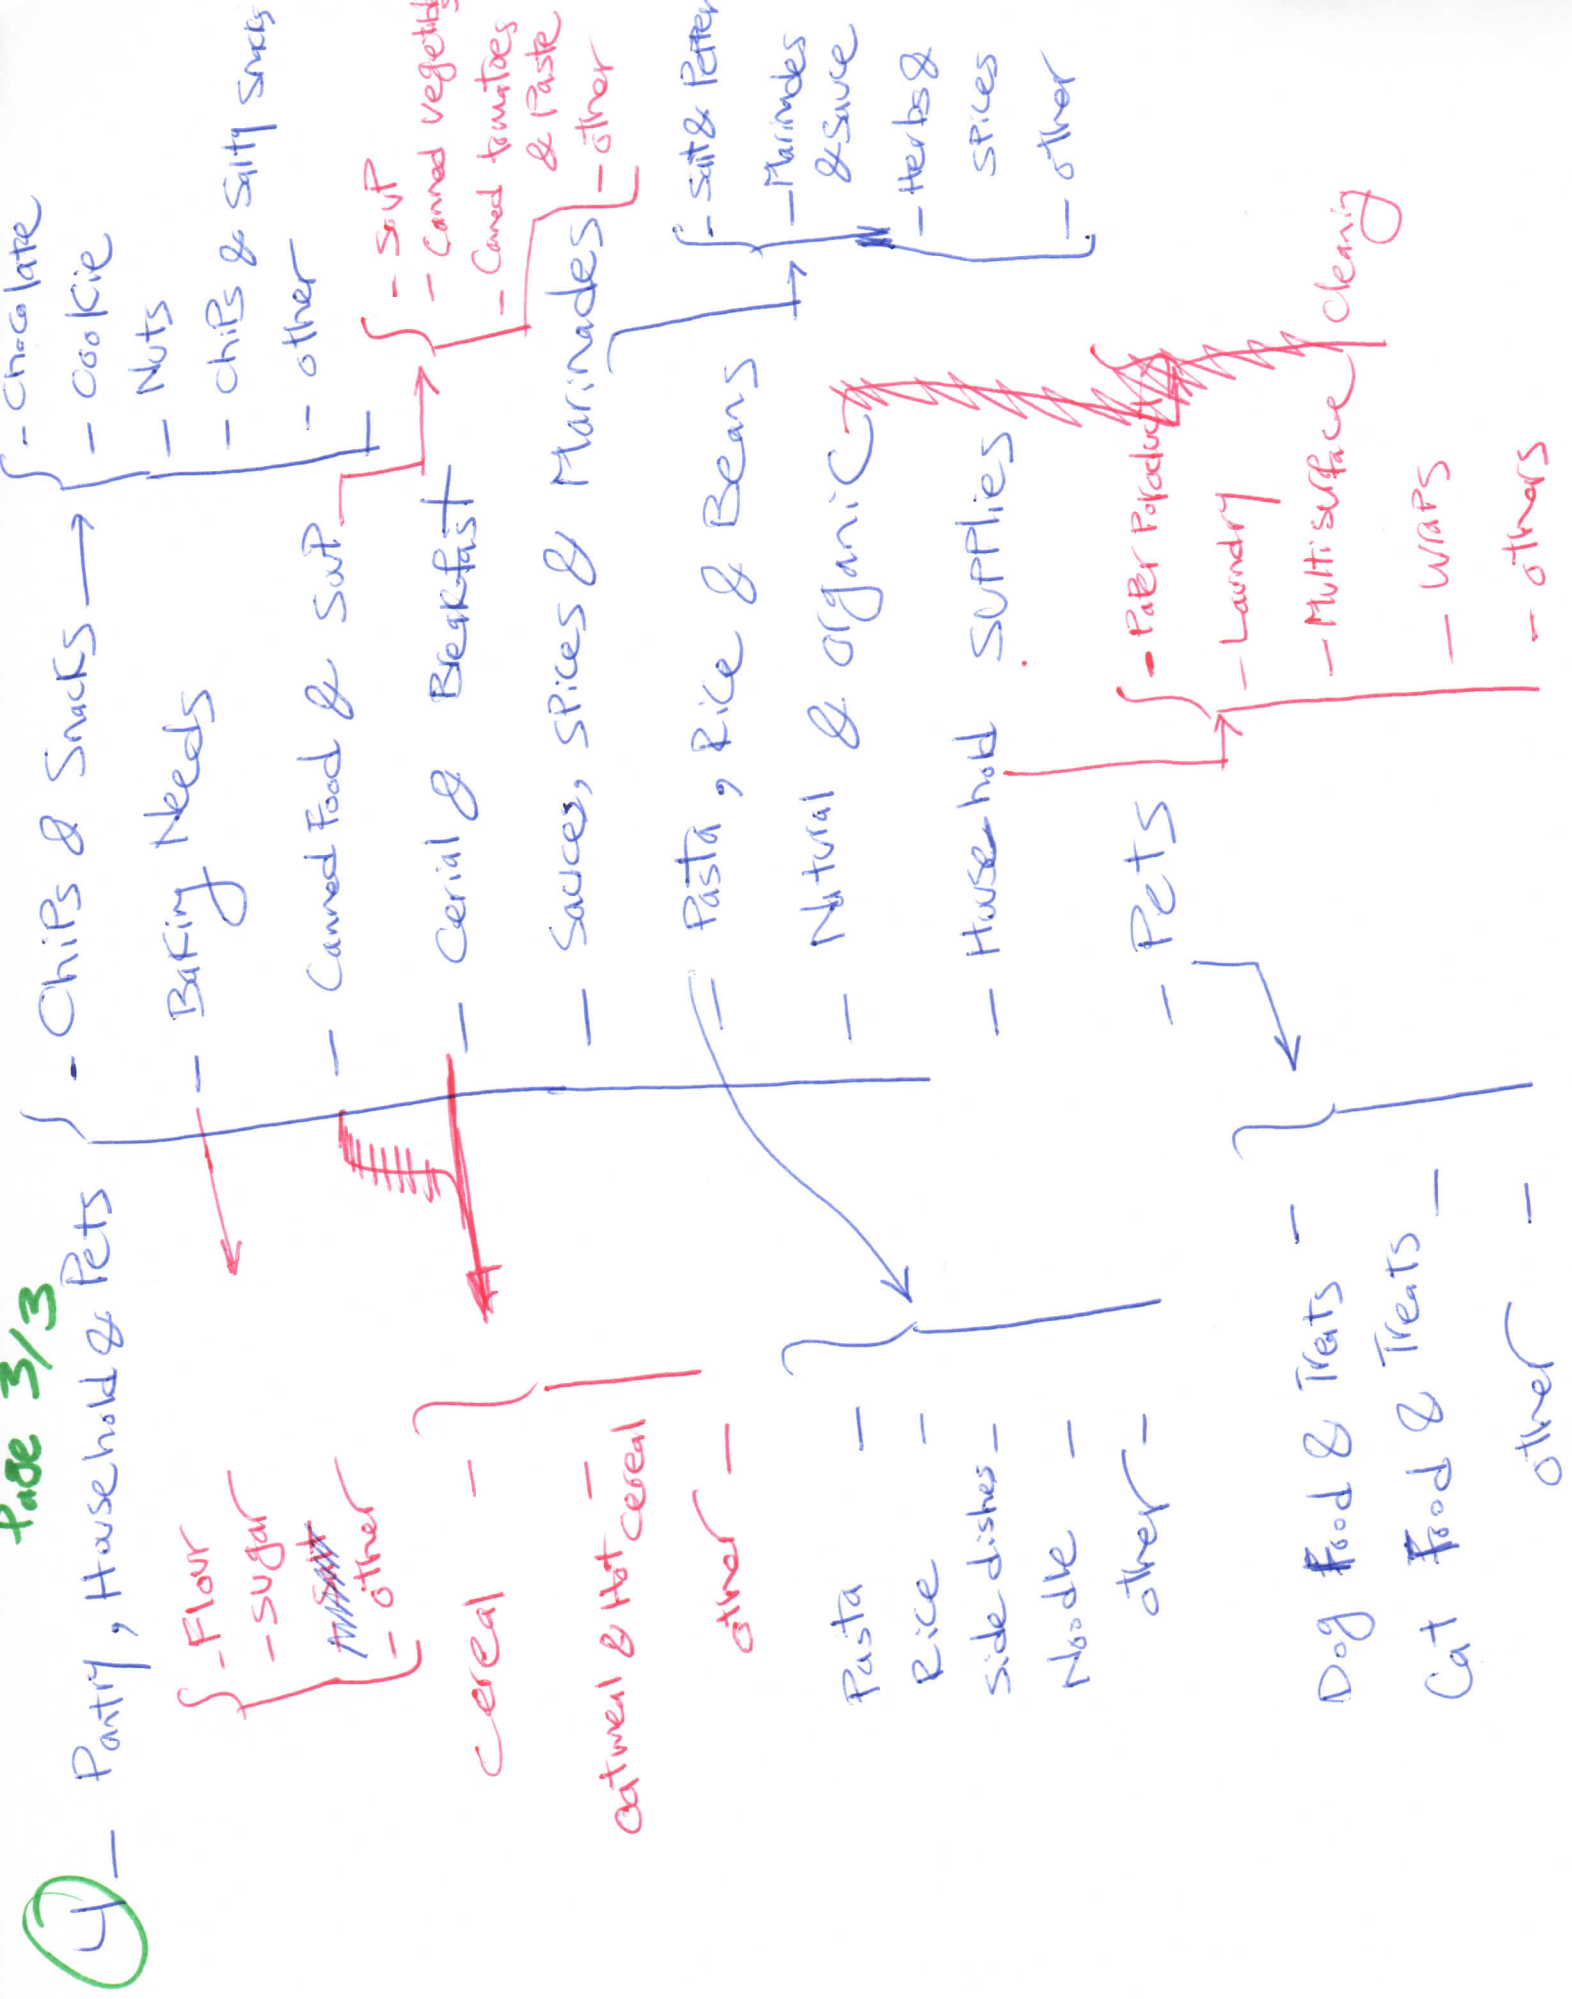 Page 3/3
4 - Pantry, Household & Pets
- Chips & Snacks
- Chocolate
- Cookie
- Nuts
- Chips & Salty Snacks
- other
- Baking Needs
- Flour
- sugar
- other
- Canned Food & Soup
- Soup
- Canned vegetbl
- Canned tomatoes
& Paste
- other
- Cerial & Breakfast
cereal -
oatmeal & Hot cereal -
other -
- Sauces, Spices & Marinades
- Salt & Pepper
- Marinades
& Sauce
- Herbs &
spices
- other
- Pasta, Rice & Beans
Pasta -
Rice -
Side dishes -
Noodle -
other -
- Natural & organic
- Household supplies
- Paper Poroduct
- Laundry
- Multisurface cleaning
- wraps
- others
- Pets
Dog Food & Treats -
Cat Food & Treats -
other -